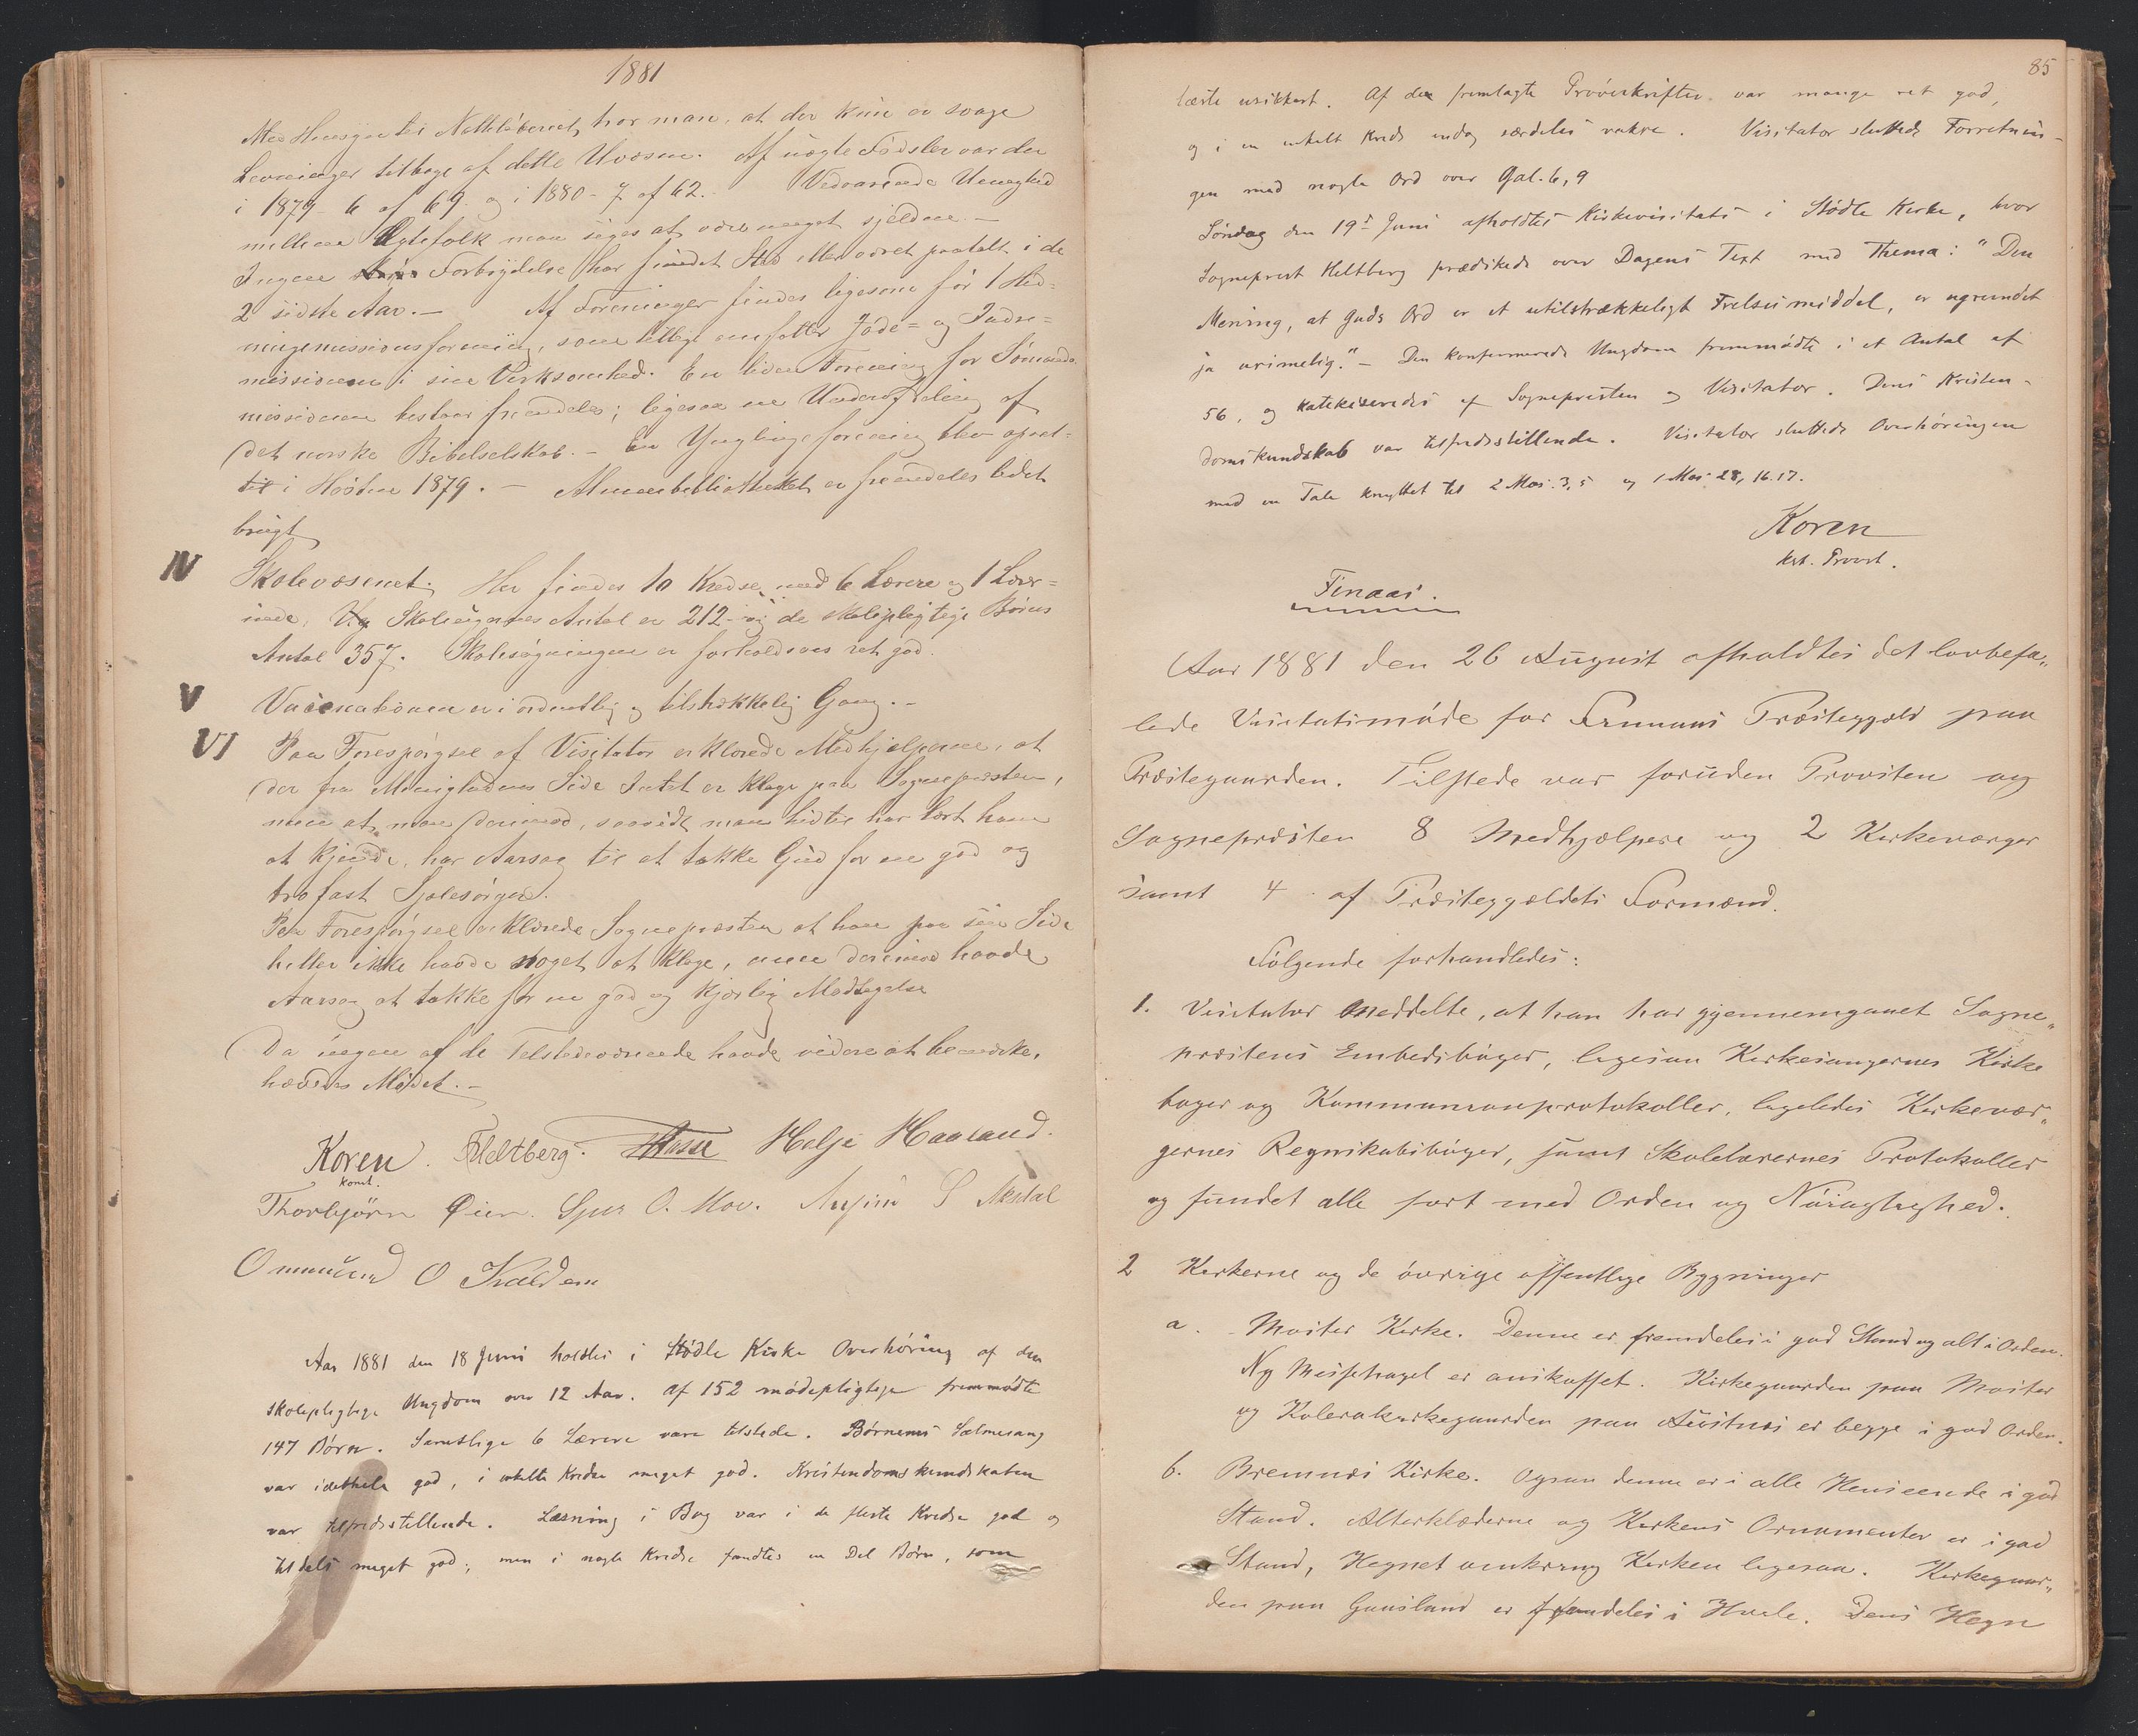 1881
Med Hensyn til Natteløberiet, har man, at der kun er svage
Levninger tilbage af dette Uvæsen. Af uægte Fødsler var der
i 1879 - 6 af 69. og i 1880 - 7 af 62. Vedvarende Uenighed
mellem Ægtefolk man siges at være meget sjelden. -
Ingen Forbrydelse har fundet Sted eller været paatalt i de
2 sidste Aar. - Af Foreninger findes ligesom før 1 Hed=
ningemissionsforening, som tillige omfatter Jøde= og Indre=
missionen i sin Virksomhed. En liden Forening for Sømands
missionen bestaar fremdeles; ligesaa en Underafdeling af
det norske Bibelselskab. - En Ynglingeforening blev opret=
tet i Høsten 1879. - Almuebibliotheket er fremdeles lidet
brugt
IV Skolevæsenet. Her findes 10 Kredse med 6 Lærere og 1 Lærer=
inde. Skolerugnenes Antal er 212 - og de skolepligtige Børns
Antal 357. Skolesøgningen er forholdsvis ret god.
V Vaccinationen er i ordentlig og tilstrækkelig Gang. -
VI Paa Forespørgsel af Visitator erklærede Medhjælperne, at
der fra Menighedens Side Intet er Klage paa Sognepræsten,
men at man derimod, saavidt man hidtil har lært ham
at kjende, har Aarsag til at takke Gud for en god og
trofast Sjælesørger.
Paa Forespørgsel erklærede Sognepræsten at han paa sin Side
heller ikke havde noget at klage, men derimod havde
Aarsag at takke for en god og kjærlig Modtagelse
Da ingen af de Tilstedeværende havde videre at bemærke,
hævedes Mødet. -
Koren. F Heltberg. Helje Haaland.
konst.
Thorbjørn Øien. Sjur O. Mov. S
Ommund O
Aar 1881 den 18 Juni holdtes i Stødle Kirke Overhøring af den
skolepligtige Ungdom over 12 Aar. Af 152 mødepligtige fremmødte
147 Børn. Samtlige 6 Lærere vare tilstede. Børnenes Salmesang
var idethele god, i enkelte Kredse meget god. Kristendomskundskaben
var tilfredsstillende. Læsning i Bog var i de fleste Kredse god og
tildels meget god; men i nogle Kredse fandtes en Del Børn, som
85
læste usikkert. Af de fremlagte Prøveskrifter var mange ret god,
og i en enkelt Kreds endog særdeles vakre. Visitator sluttede Forretnin-
gen med nogle Ord over Gal. 6, 9
Søndag den 19de Juni afholdtes Kirkevisitats i Stødle Kirke, hvor
Sogneprest Heltberg prædikede over Dagens Text med Thema: "Den
Mening, at Guds Ord er et utilstrækkeligt Frelsesmiddel, er ugrundet
ja urimelig." - Den konfirmerede Ungdom fremmødte i et Antal af
56, og katekiseredes af Sognepresten og Visitator. Dens Kristen-
domskundskab var tilfredsstillende. Visitator sluttede Overhøringen
med en Tale knyttet til 2 Mos. 3, 5 og 1 Mos. 28, 16. 17.
Koren
kst. Provst.
Finaas.
Aar 1881 den 26 August afholdtes det lovbefa„
lede Visitatsmøde for Finnaas Præstegjæld paa
Præstegaarden. Tilstede var foruden Provsten og
Sognepræsten 8 Medhjælpere og 2 Kirkeværger
samt 4 af Præstegjældets Formænd.
Følgende forhandledes:
1. Visitator meddelte, at han har gjennemgaaet Sogne„
præstens Embedsbøger, ligesaa Kirkesangernes Kirke
bøger og Kommunionsprotokoller, ligeledes Kirkevær„
gernes Regnskabsbøger, samt Skolelærernes Protokoller
og fundet alle ført med Orden og Nøiagtighed.
2 Kirkerne og de øvrige offentlige Bygninger
a. Moster Kirke. Denne er fremdeles i god Stand og alt i Orden.
Ny Messehagel er anskaffet. Kirkegaarden paa Moster
og Kolerakirkegaarden paa er begge i god Orden.
b. Bremnæs Kirke. Ogsaa denne er i alle Henseende i god
Stand. Alterklæderne og Kirkens Ornamenter er i god
Stand, Hegnet omkring Kirken ligesaa. Kirkegaar„
den paa Gaasland er fremdeles i Hvile. Dens Hegn